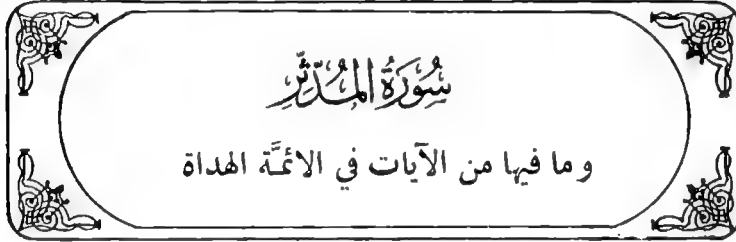 سُورَةُ المُدَّثِّرِ
وما فيها من الآيات في الائمَّة الهداة